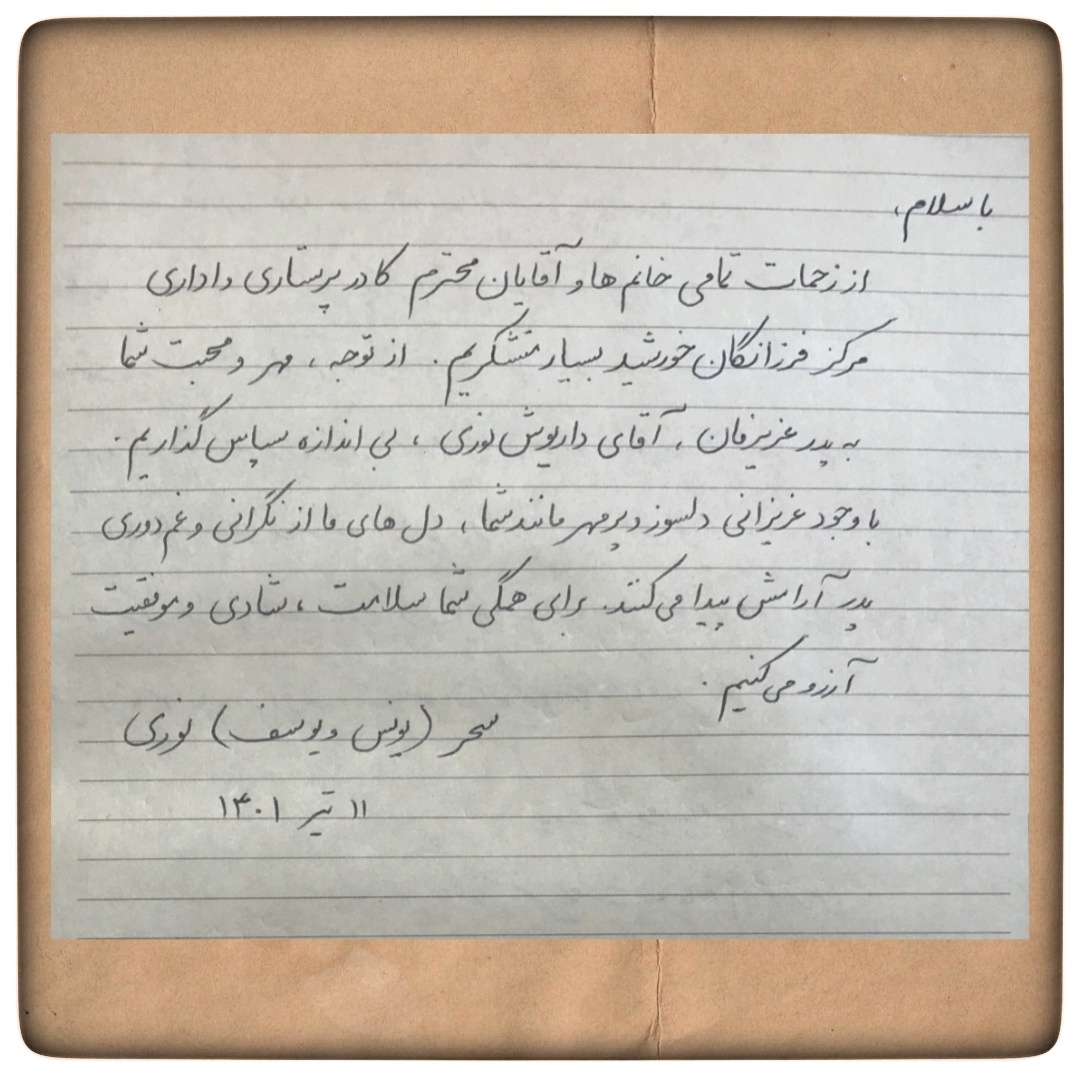 با سلام،
از زحمات تمامی خانم ها و آقایان محترم کادر پرستاری و اداری
مرکز فرزانگان خورشید بسیار متشکریم. از توجه، مهر و محبت شما
به پدر عزیزمان، آقای داریوش نوری، بی اندازه سپاس گذاریم.
با وجود عزیزانی دلسوز و پرمهر مانند شما، دل های ما از نگرانی و غم دوری
پدر آرامش پیدا می کنند. برای همگی شما سلامت، شادی و موفقیت
آرزو می کنیم.
سحر (یونس و یوسف) نوری
۱۱ تیر ۱۴۰۱